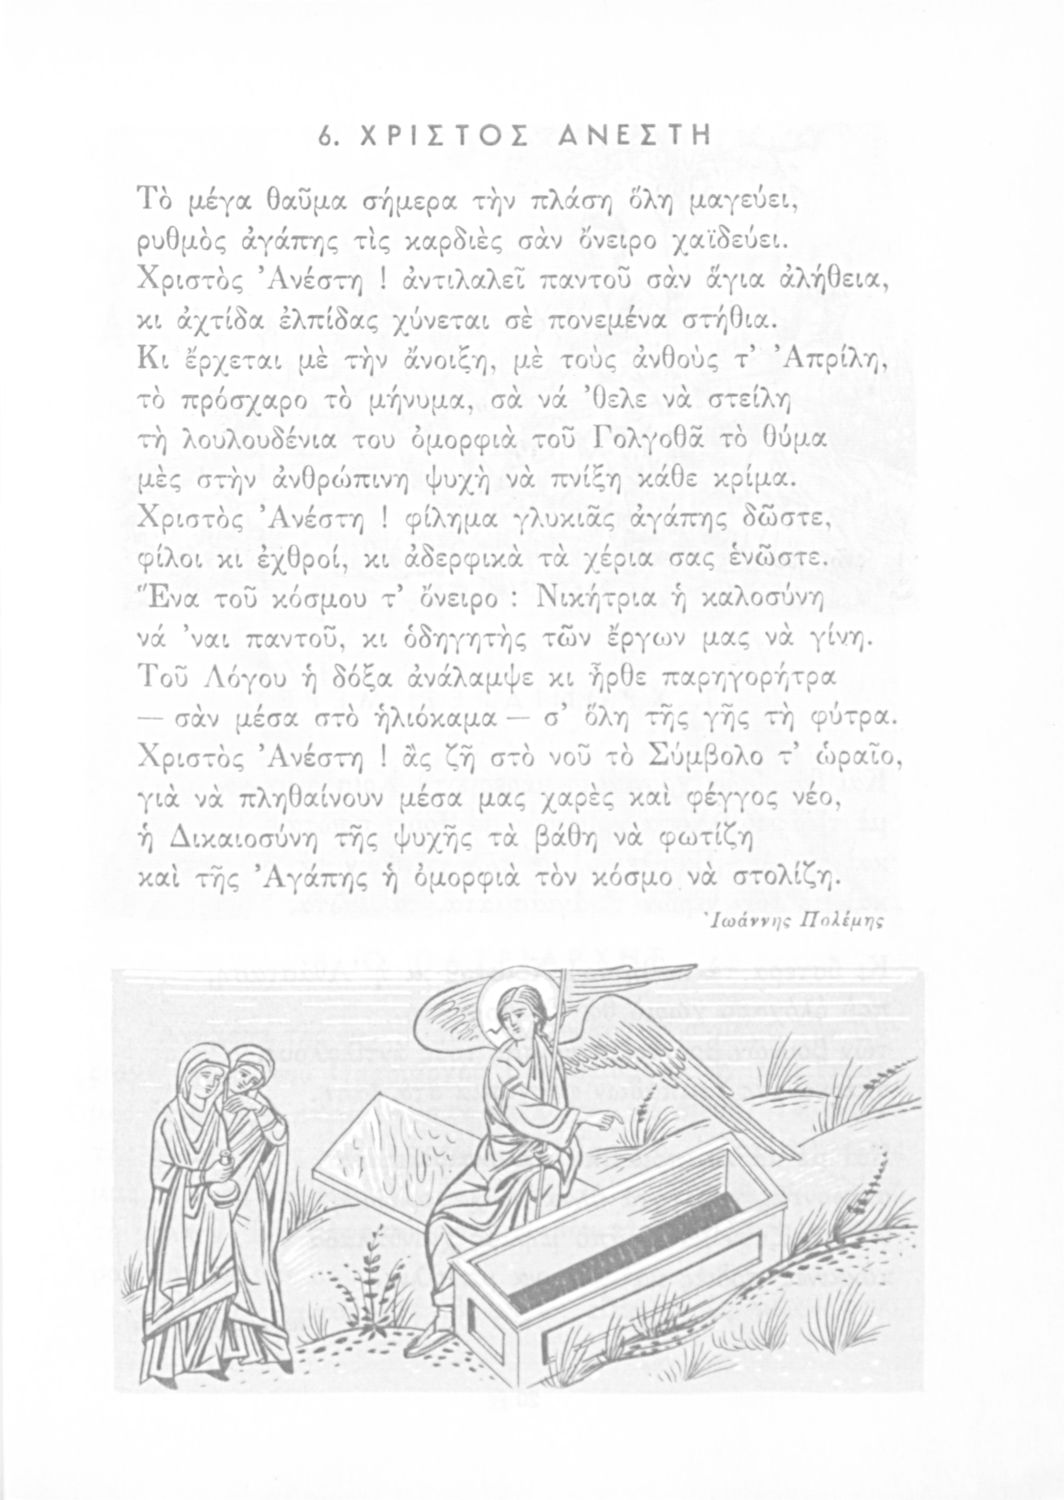 6. ΧΡΙΣΤΟΣ ΑΝΕΣΤΗ
Τὸ μέγα θαῦμα σήμερα τὴν πλάση ὅλη μαγεύει,
ρυθμὸς ἀγάπης τὶς καρδιὲς σὰν ὄνειρο χαϊδεύει.
Χριστὸς Ἀνέστη ! ἀντιλαλεῖ παντοῦ σὰν ἅγια ἀλήθεια,
κι ἀχτίδα ἐλπίδας χύνεται σὲ πονεμένα στήθια.
Κι ἔρχεται μὲ τὴν ἄνοιξη, μὲ τοὺς ἀνθοὺς τ’ Ἀπρίλη,
τὸ πρόσχαρο τὸ μήνυμα, σὰ νά ’θελε νὰ στείλη
τὴ λουλουδένια του ὀμορφιὰ τοῦ Γολγοθᾶ τὸ θύμα
μὲς στὴν ἀνθρώπινη ψυχὴ νὰ πνίξη κάθε κρίμα.
Χριστὸς Ἀνέστη ! φίλημα γλυκιᾶς ἀγάπης δῶστε,
φίλοι κι ἐχθροί, κι ἀδερφικὰ τὰ χέρια σας ἑνῶστε.
Ἕνα τοῦ κόσμου τ’ ὄνειρο : Νικήτρια ἡ καλοσύνη
νά ’ναι παντοῦ, κι ὁδηγητὴς τῶν ἔργων μας νὰ γίνη.
Τοῦ Λόγου ἡ δόξα ἀνάλαμψε κι ἦρθε παρηγορήτρα
— σὰν μέσα στὸ ἡλιόκαμα — σ’ ὅλη τῆς γῆς τὴ φύτρα.
Χριστὸς Ἀνέστη ! ἂς ζῆ στὸ νοῦ τὸ Σύμβολο τ’ ὡραῖο,
γιὰ νὰ πληθαίνουν μέσα μας χαρὲς καὶ φέγγος νέο,
ἡ Δικαιοσύνη τῆς ψυχῆς τὰ βάθη νὰ φωτίζη
καὶ τῆς Ἀγάπης ἡ ὀμορφιὰ τὸν κόσμο νὰ στολίζη.
Ἰωάννης Πολέμης